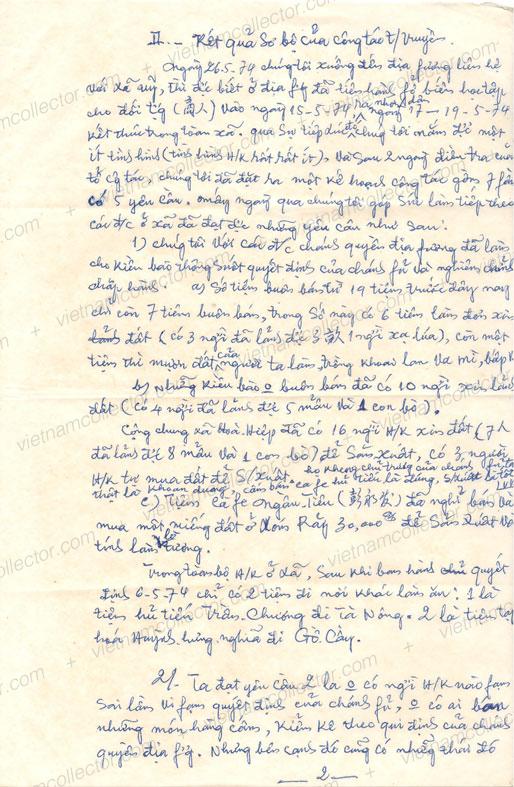 II. - Kết quả sơ bộ của công tác t/truyền.
Ngày 26.5.74 chúng tôi xuống đến địa fương liên hệ
với xã uỷ, thì đc biết ở địa fg đã tiến hành fổ biến học tập
cho đối t'g (商人) vào ngày 15-5-74, ra nhân dân ngày 17 - 19-5-74
kết thúc trong toàn xã. Qua sự tiếp đc chúng tôi nắm đc một
ít tình hình (tình hình H/K rất ít), và sau 2 ngày điều tra của
tổ cg tác, chúng tôi đã đặt ra một kế hoạch công tác gồm 7 fần
có 5 yêu cầu. mấy ngày qua chúng tôi giúp sức làm tiếp theo
các đ/c ở xã đã đạt đc những yêu cầu như sau:
1) chúng tôi với các đ/c chánh quyền địa fương đã làm
cho kiều bào thông suốt quyết định của chánh fủ và nghiêm chỉnh
chấp hành. a) Số tiệm buôn bán từ 19 tiệm trước đây nay
chỉ còn 7 tiệm buôn bán, trong số này có 6 tiệm làm đơn xin
đất (có 3 ngời đã lãnh đc 3 1 ngời xạ lúa), còn một
tiệm thì mượn đất của người ta làm, trồng khoai lan và mì, bắp
b) Những kiều bào o buôn bán đã có 10 ngời xin lãnh
đất (có 4 ngời đã lãnh đc 5 mẫu và 1 con bò).
Cộng chung xã Hoà Hiệp đã có 16 ngời H/K xin đất (7
đã lãnh đc 8 mẫu và 1 con bò) để sản xuất, có 3 người
H/K tự mua đất để s/xuất
c) Tiệm cà fe Ngân Tiêu đã nghỉ bán và
mua một miếng đất ở Xóm Rẫy 30,000 để sản xuất với
tính làm
Trong toàn bộ H/K ở xã, sau khi ban hành quyết
định 6-5-74 chỉ có 2 tiệm đi nơi khác làm ăn: 1 là
tiệm hủ tiếu Trần Chương đi Tà Nông. 2 là tiệm tạp
hoá Huỳnh hưng nghĩa đi Gò Cây.
2/. Ta đạt yêu cầu 2 là o có ngời H/K nào fạm
sai lầm vi fạm quyết định của chánh fủ, o có ai bán
những món hàng cấm, kiểm kê theo qui định của chánh
quyền địa f'g. Nhưng bên cạnh đó cũng có những thái độ
— 2 —
vietnamcollector.com